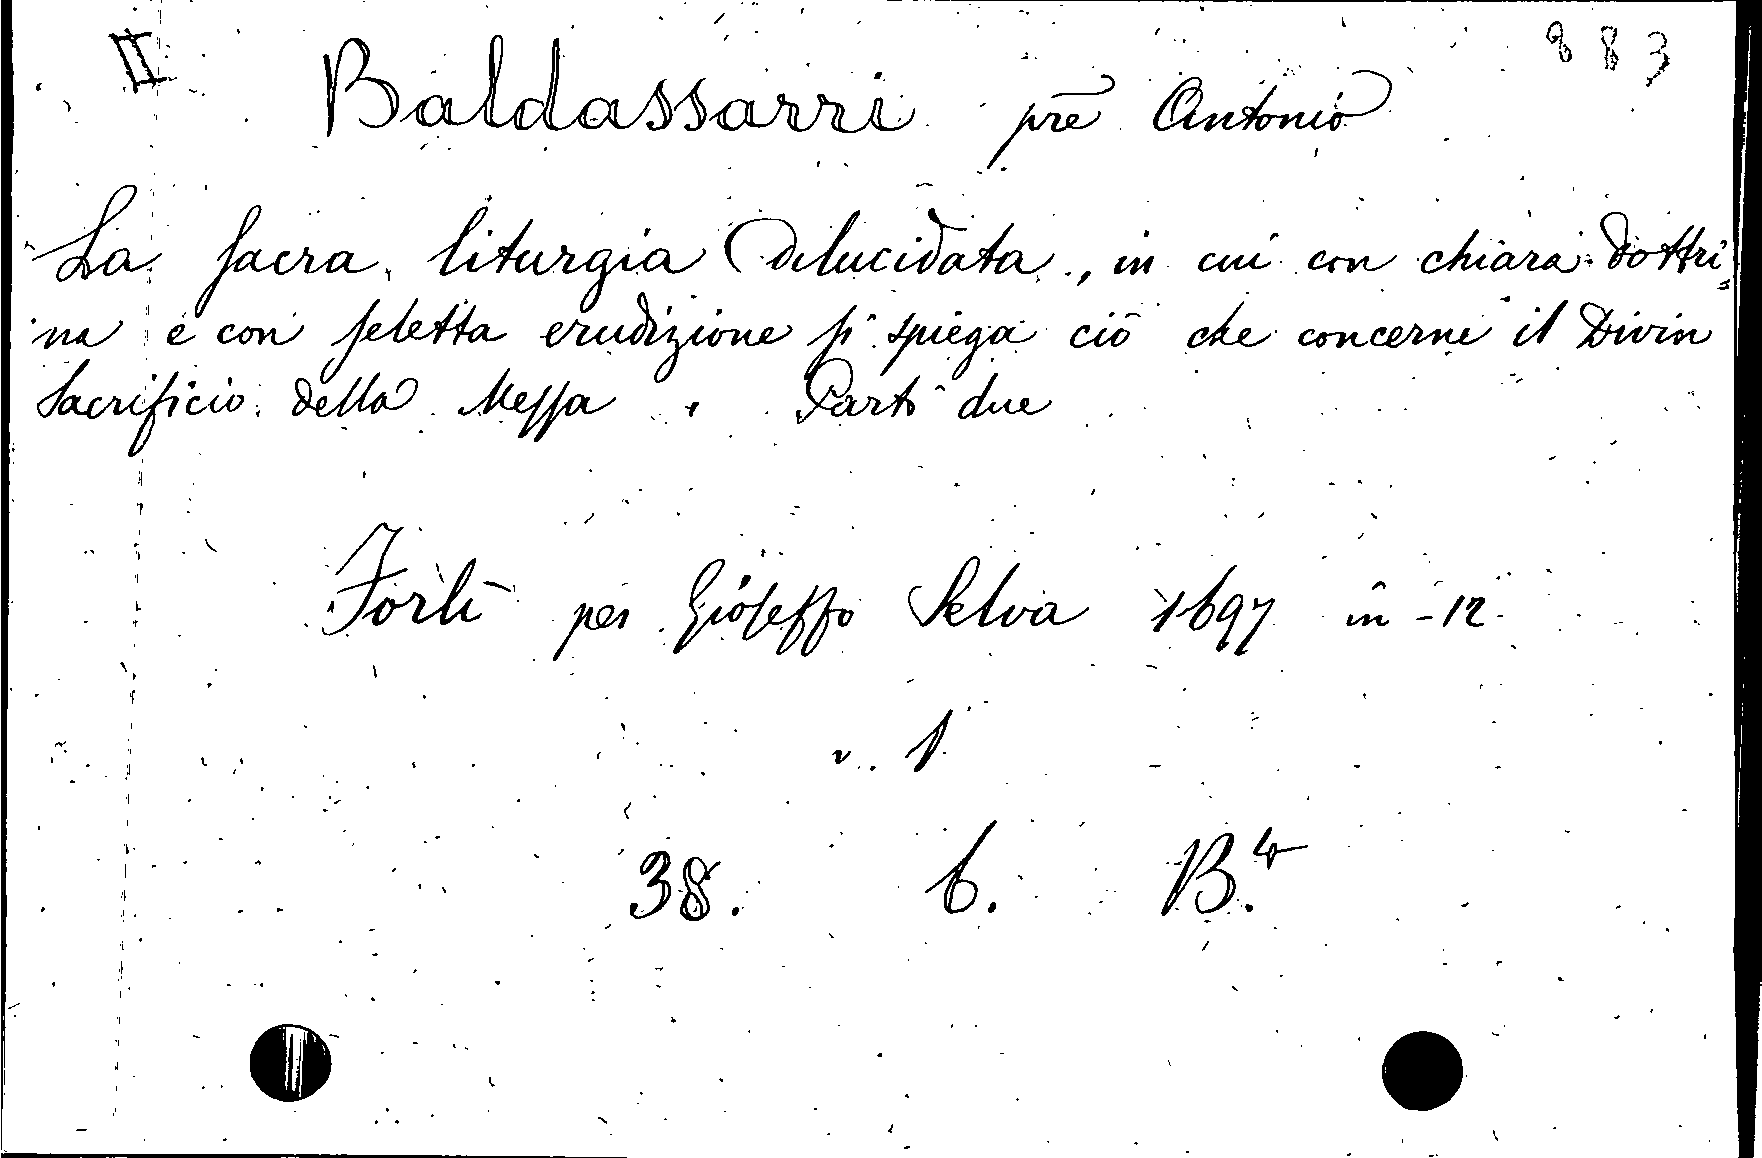 II Baldassarri pre Antonio 883
La sacra liturgia Dilucidata, in cui con chiara dottri=
na e con seletta erudizione si spiega ciò che concerne il Divin
Sacrificio della Messa. Parti due
Forlì per Gioseffo Selva 1697 in-12
v. 1
38. 6. B.4